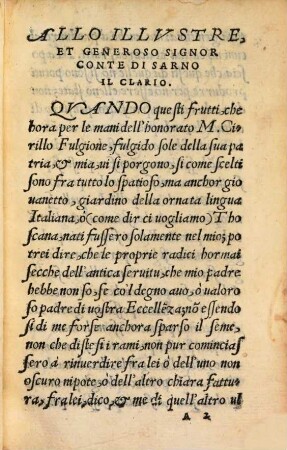 ALLO ILLVSTRE,
ET GENEROSO SIGNOR
CONTE DI SARNO
IL CLARIO.
QVANDO questi frutti, che
hora per le mani dell'honorato M. Ci=
rillo Fulgione, fulgido sole della sua pa
tria, & mia, ui si porgono, si come scelti
sono fra tutto lo spatioso, ma anchor gio
uanetto, giardino della ornata lingua
Italiana, ò (come dir ci uogliamo) Tho
scana, nati fussero solamente nel mio; po
trei dire, che le proprie radici hormai
secche dell'antica seruitu, che mio padre
hebbe non so, se col degno auo, ò ualoro
so padre di uostra Eccellẽza, nõ essendo
si di me forse anchora sparso il seme,
non che distesi i rami, non pur comincias
sero à rinuerdire fra lei ò dell'uno non
oscuro nipote, ò dell'altro chiara fattu
ra, fra lei, dico, & me di quell'altro ul
A 2